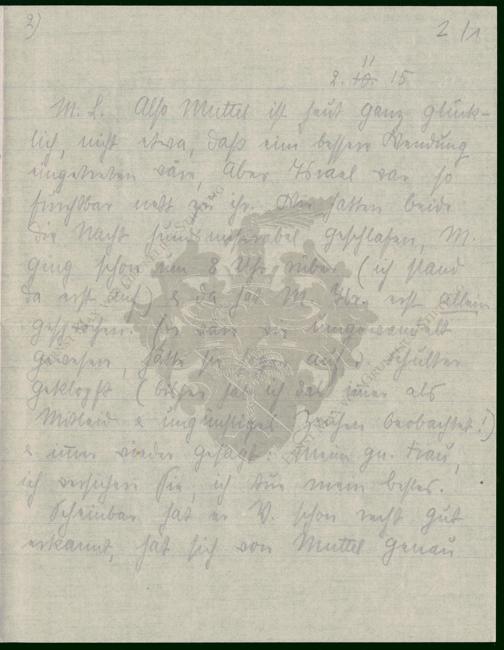 2) 2/1
11
2. 10. 15
M. L. Also Muttel ist heut ganz glück-
lich, nicht etwa, daß eine bessere Wendung
eingetreten wäre, aber Israel war so
furchtbar nett zu ihr. Wir hatten beide
die Nacht hundsmiserabel geschlafen, M.
ging schon um 8 Uhr rüber (ich stand
da erst auf) & da hat M. Isr. erst allein
gesprochen. Er wäre wie umgewandelt
gewesen, hätte ihr auf d. Schulter
geklopft (bisher hab ich das immer als
Mitleid & ungünstiges Zeichen beobachtet!)
& immer wieder gesagt: Meine gn. Frau,
ich versichere Sie, ich tue mein bestes.
Scheinbar hat er V. schon recht gut
erkannt, hat sich von Muttel genau